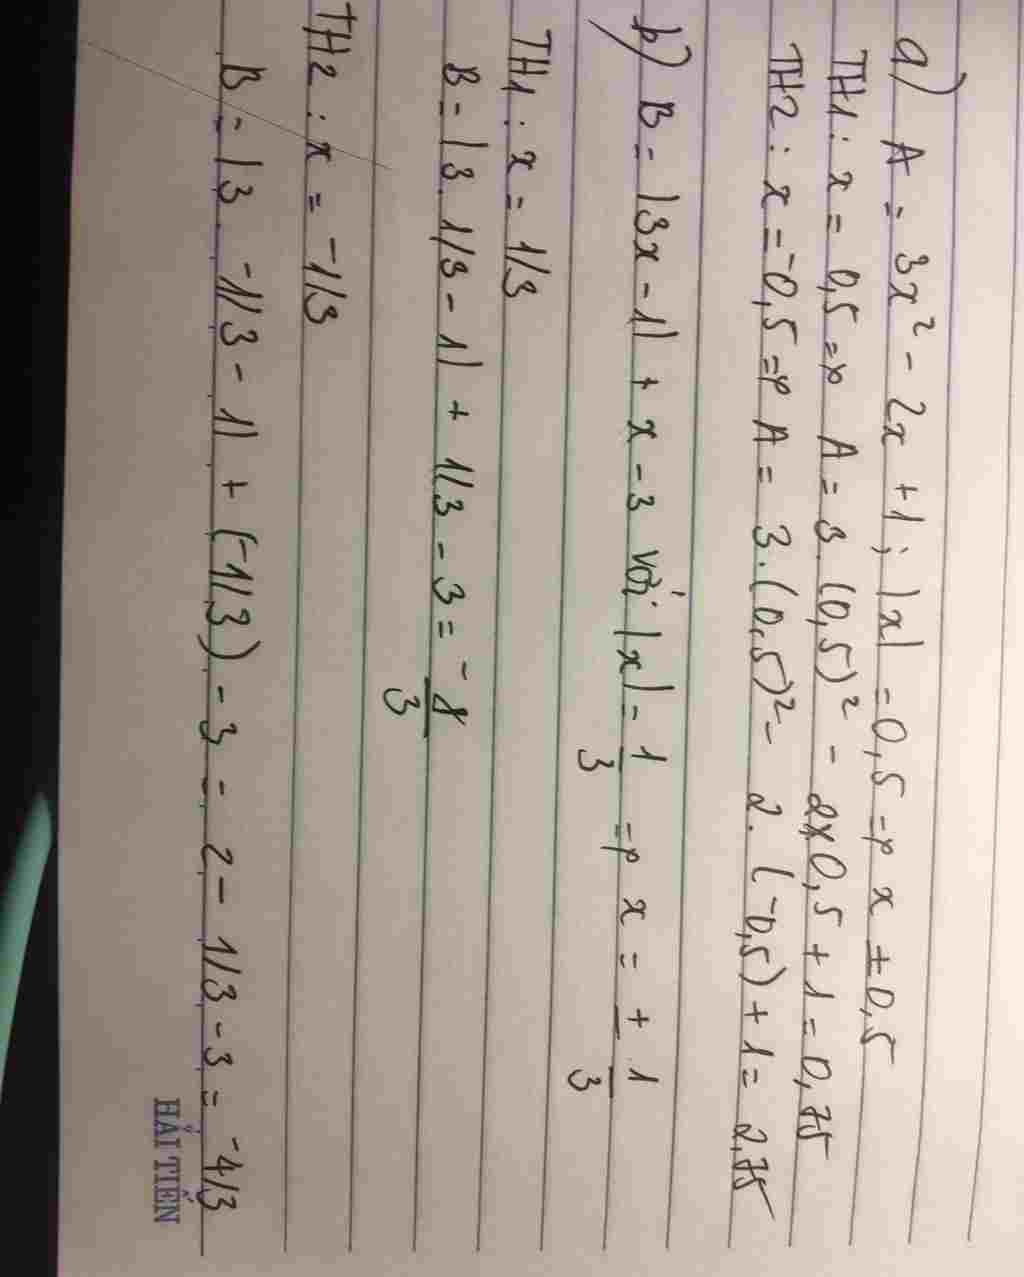 a) A = 3x² - 2x + 1; |x| = 0,5 => x ± 0,5
TH1: x = 0,5 => A = 3.(0,5)² - 2x0,5 + 1 = 0,75
TH2: x = -0,5 => A = 3.(0,5)² - 2.(-0,5) + 1 = 2,75
b) B = |3x - 1| + x - 3 với |x| = 1/3 => x = ± 1/3
TH1: x = 1/3
B = |3.1/3 - 1| + 1/3 - 3 = -8/3
TH2: x = -1/3
B = |3. -1/3 - 1| + (-1/3) - 3 = 2 - 1/3 - 3 = -4/3
HẢI TIẾN